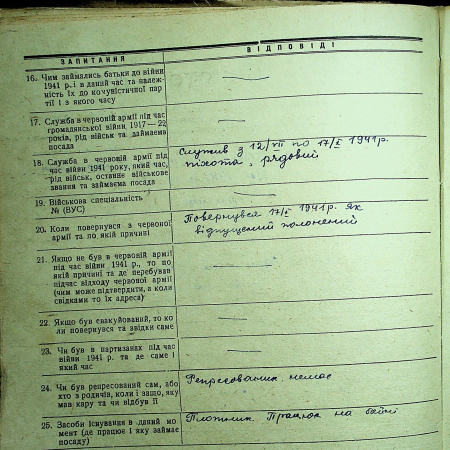 ЗАПИТАННЯ ВІДПОВІДІ
16. Чим займались батьки до війни
1941 р. і в даний час та належ-
ність їх до комуністичної пар-
тії і з якого часу
17. Служба в червоній армії під час
громадянської війни 1917—22
років, рід військ та займаєма
посада
18. Служба в червоній армії під
час війни 1941 року, який час,
рід військ, останнє військове
звання та займаєма посада
Служив з 12/VII по 17/X 1941 р.
піхота, рядовий
19. Військова спеціальність
№ (ВУС)
20. Коли повернувся з червоної
армії та по якій причині
Повернувся 17/X 1941 р. як
відпущений полонений
21. Якщо не був в червоній армії
під час війни 1941 р., то по
якій причині та де перебував
підчас відходу червоної армії
(чим може підтвердити, а коли
свідками то їх адреса)
22. Якщо був евакуйований, то ко-
ли повернувся та звідки саме
23. Чи був в партизанах під час
війни 1941 р. та де саме і
який час
24. Чи був репресований сам, або
хто з родичів, коли і защо, яку
мав кару та чи відбув її
Репресованих немає
25. Засоби існування в даний мо-
мент (де працює і яку займає
посаду)
Плотник. Працює на